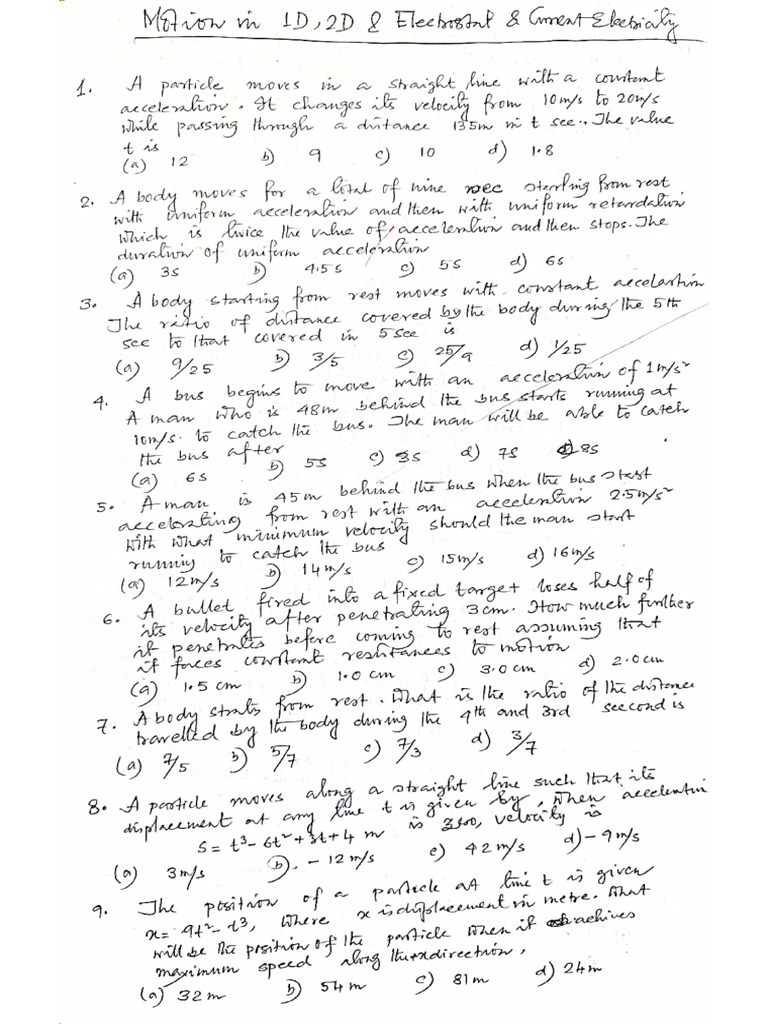 Motion in 1D, 2D & Electrostat & Current Electricity
1. A particle moves in a straight line with a constant
acceleration. It changes its velocity from 10m/s to 20m/s
while passing through a distance 135m in t sec.. The value
t is
(a) 12 b) 9 c) 10 d) 1.8
2. A body moves for a total of nine sec starting from rest
with uniform acceleration and then with uniform retardation
which is twice the value of acceleration and then stops. The
duration of uniform acceleration
(a) 3s b) 4.5s c) 5s d) 6s
3. A body starting from rest moves with constant accelartion
The ratio of distance covered by the body during the 5th
sec to that covered in 5 sec is
(a) 9/25 b) 3/5 c) 25/9 d) 1/25
4. A bus begins to move with an acceleration of 1m/s²
A man who is 48m behind the bus starts running at
10m/s. to catch the bus. The man will be able to catch
the bus after
(a) 6s b) 5s c) 3s d) 7s 8s
5. A man is 45m behind the bus when the bus start
accelerating from rest with an acceleration 2.5m/s²
with what minimum velocity should the man start
running to catch the bus
(a) 12m/s b) 14m/s c) 15m/s d) 16m/s
6. A bullet fired into a fixed target loses half of
its velocity after penetrating 3cm. How much further
it penetrates before coming to rest assuming that
it faces constant resistances to motion
(a) 1.5 cm b) 1.0 cm c) 3.0 cm d) 2.0 cm
7. A body strats from rest. What is the ratio of the distance
travelled by the body during the 4th and 3rd second is
(a) 7/5 b) 5/7 c) 7/3 d) 3/7
8. A particle moves along a straight line such that its
displacement at any time t is given by, when acceleration
s = t³-6t²+3t+4 m is zero, velocity is
(a) 3m/s b). -12m/s c) 42m/s d) -9m/s
9. The position of a particle at time t is given
x = 9t²-t³, where x is displacement in metre. What
will be the position of the particle when it achives
maximum speed along the +x direction,
(a) 32m b) 54m c) 81m d) 24m